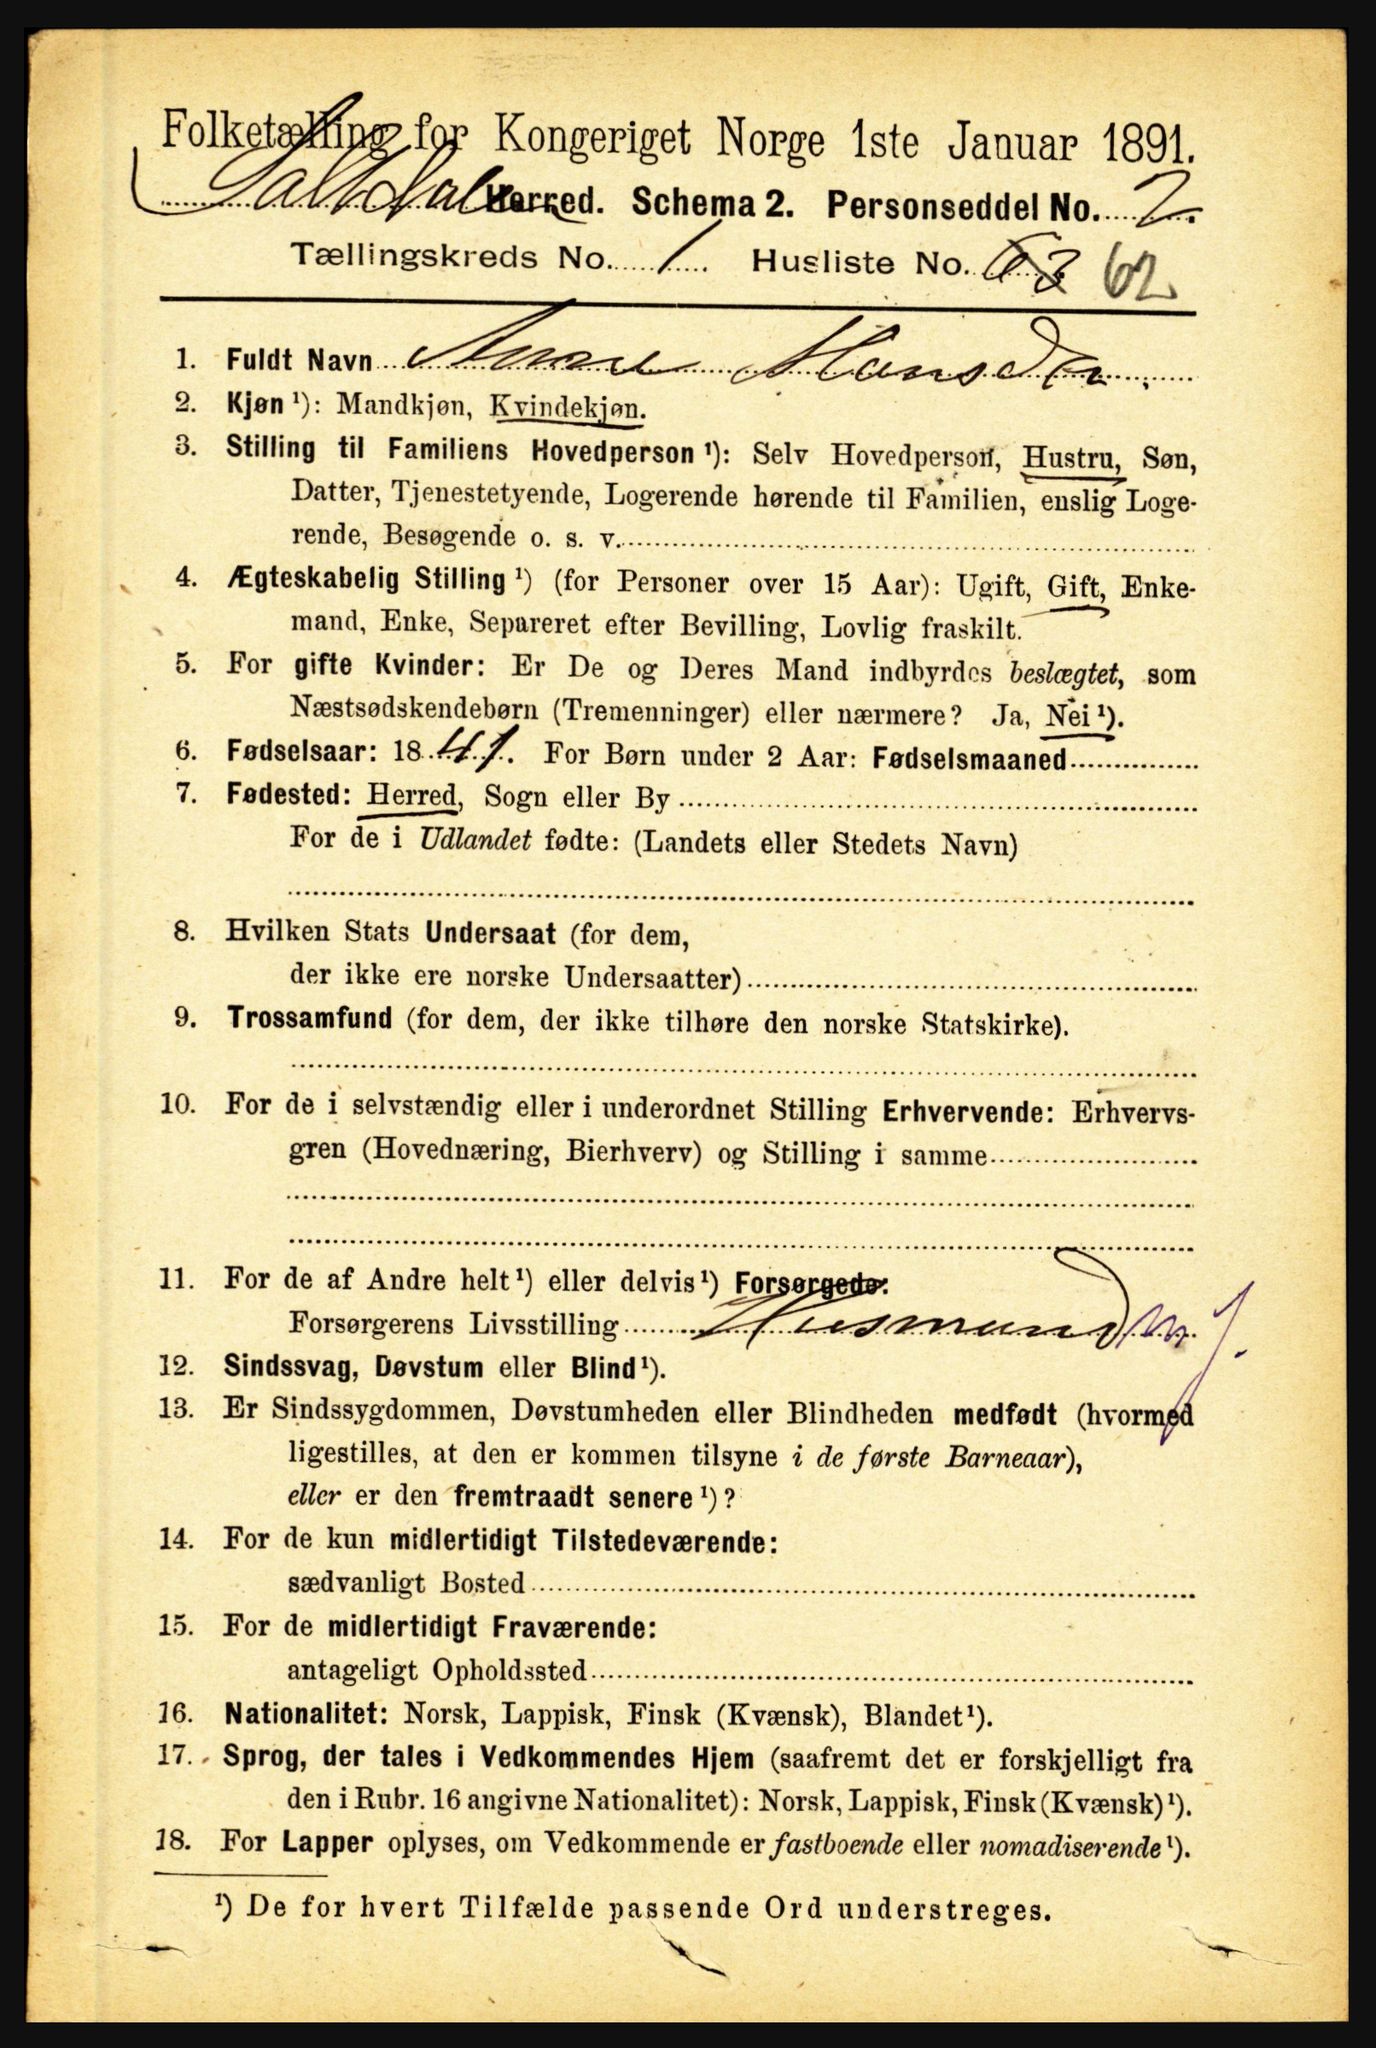 Folketælling for Kongeriget Norge 1ste Januar 1891.
Saltdalen Herred. Schema 2. Personseddel No. 2.
Tællingskreds No. 1. Husliste No. 63 62
1. Fuldt Navn Anne Hansdtr.
2. Kjøn ¹): Mandkjøn, Kvindekjøn.
3. Stilling til Familiens Hovedperson ¹): Selv Hovedperson, Hustru, Søn,
Datter, Tjenestetyende, Logerende hørende til Familien, enslig Loge-
rende, Besøgende o. s. v.
4. Ægteskabelig Stilling ¹) (for Personer over 15 Aar): Ugift, Gift, Enke-
mand, Enke, Separeret efter Bevilling, Lovlig fraskilt.
5. For gifte Kvinder: Er De og Deres Mand indbyrdes beslægtet, som
Næstsødskendebørn (Tremenninger) eller nærmere? Ja, Nei ¹).
6. Fødselsaar: 1841. For Børn under 2 Aar: Fødselsmaaned
7. Fødested: Herred, Sogn eller By
For de i Udlandet fødte: (Landets eller Stedets Navn)
8. Hvilken Stats Undersaat (for dem,
der ikke ere norske Undersaatter)
9. Trossamfund (for dem, der ikke tilhøre den norske Statskirke).
10. For de i selvstændig eller i underordnet Stilling Erhvervende: Erhvervs-
gren (Hovednæring, Bierhverv) og Stilling i samme
11. For de af Andre helt ¹) eller delvis ¹) Forsørgede:
Forsørgerens Livsstilling Husmand m. J.
12. Sindssvag, Døvstum eller Blind ¹).
13. Er Sindssygdommen, Døvstumheden eller Blindheden medfødt (hvormed
ligestilles, at den er kommen tilsyne i de første Barneaar),
eller er den fremtraadt senere ¹)?
14. For de kun midlertidigt Tilstedeværende:
sædvanligt Bosted
15. For de midlertidigt Fraværende:
antageligt Opholdssted
16. Nationalitet: Norsk, Lappisk, Finsk (Kvænsk), Blandet ¹).
17. Sprog, der tales i Vedkommendes Hjem (saafremt det er forskjelligt fra
den i Rubr. 16 angivne Nationalitet): Norsk, Lappisk, Finsk (Kvænsk) ¹).
18. For Lapper oplyses, om Vedkommende er fastboende eller nomadiserende ¹).
¹) De for hvert Tilfælde passende Ord understreges.